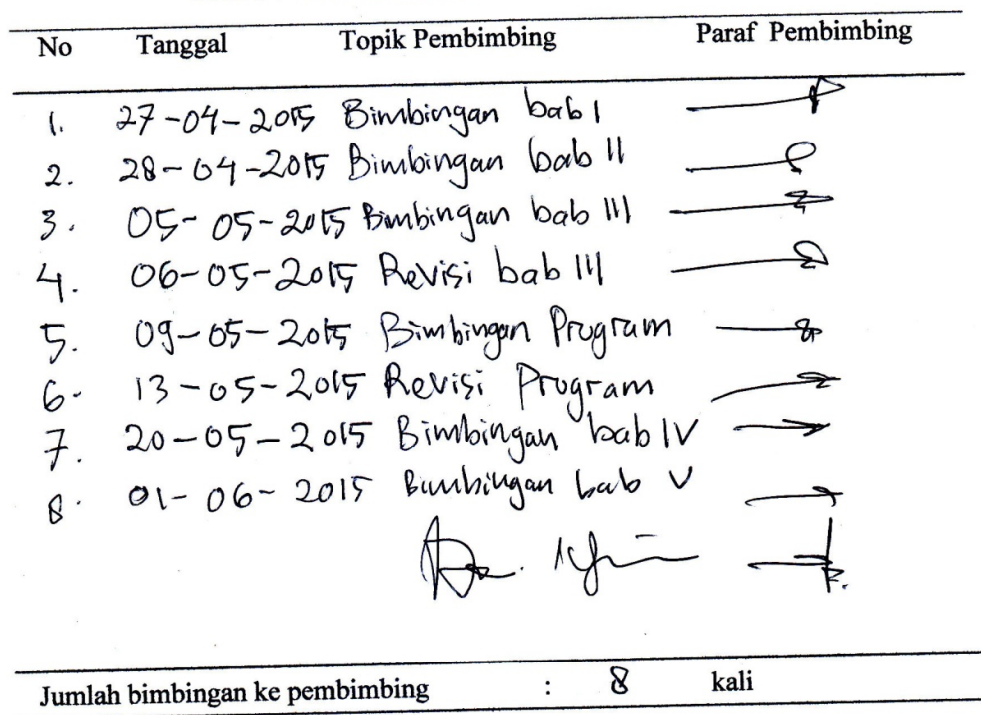 No Tanggal Topik Pembimbing Paraf Pembimbing
1. 27-04-2015 Bimbingan bab I
2. 28-04-2015 Bimbingan bab II
3. 05-05-2015 Bimbingan bab III
4. 06-05-2015 Revisi bab III
5. 09-05-2015 Bimbingan Program
6. 13-05-2015 Revisi Program
7. 20-05-2015 Bimbingan bab IV
8. 01-06-2015 Bimbingan bab V
Jumlah bimbingan ke pembimbing : 8 kali